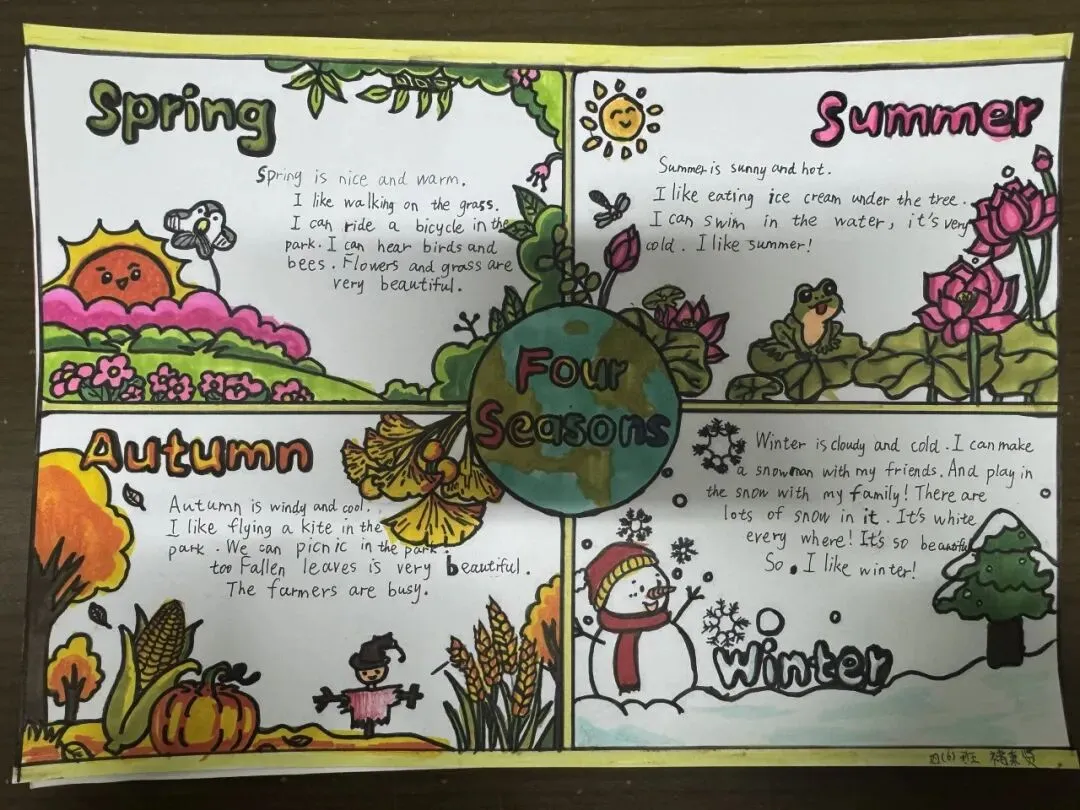 Spring
Spring is nice and warm.
I like walking on the grass.
I can ride a bicycle in the
park. I can hear birds and
bees. Flowers and grass are
very beautiful.
Summer
Summer is sunny and hot.
I like eating ice cream under the tree.
I can swim in the water, it's very
cold. I like summer!
Four
Seasons
Autumn
Autumn is windy and cool.
I like flying a kite in the
park. We can picnic in the park.
too Fallen leaves is very beautiful.
The farmers are busy.
Winter is cloudy and cold. I can make
a snowman with my friends. And play in
the snow with my family! There are
lots of snow in it. It's white
every where! It's so beautiful
So. I like winter!
Winter
四(6)班